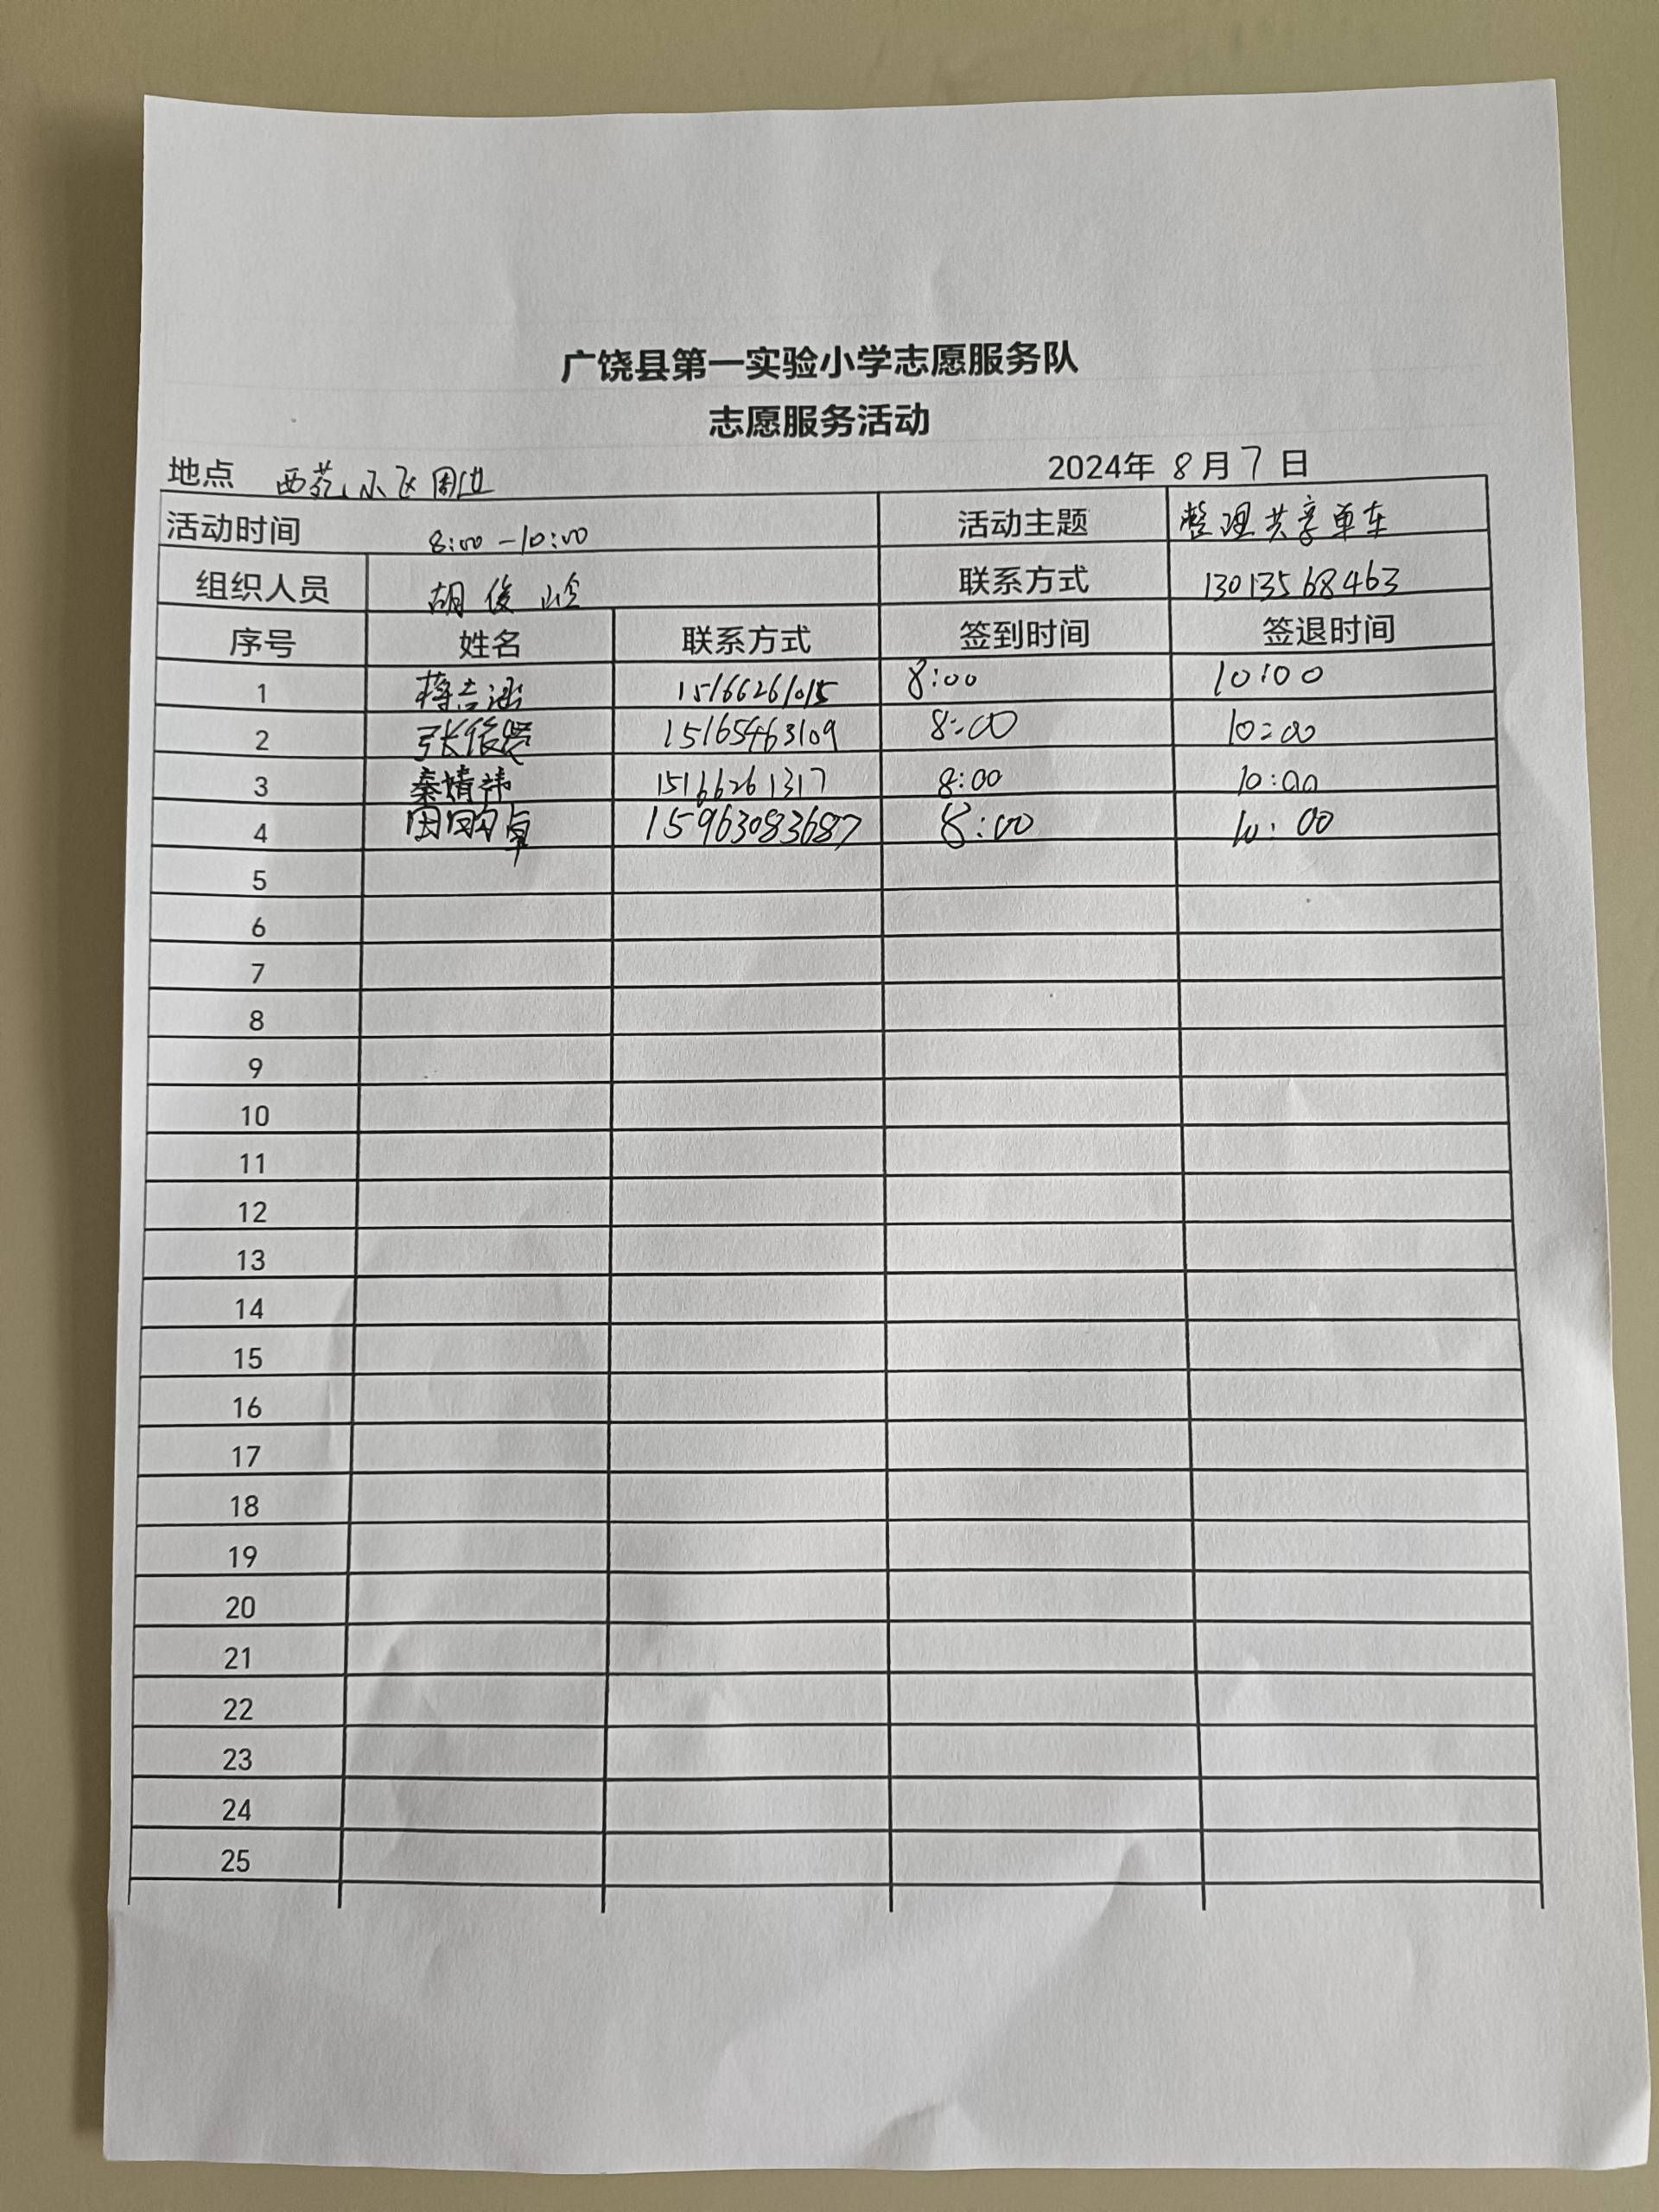 广饶县第一实验小学志愿服务队
志愿服务活动
地点 西苑小区周边 2024年 8月7日
活动时间 8:00-10:00 活动主题 整理共享单车
组织人员 胡俊 联系方式 13013568463
序号 姓名 联系方式 签到时间 签退时间
1 15166261015 8:00 10:00
2 张俊 15165463109 8:00 10:00
3 秦婧祎 15166261317 8:00 10:00
4 田 卓 15963083687 8:00 10:00
5
6
7
8
9
10
11
12
13
14
15
16
17
18
19
20
21
22
23
24
25